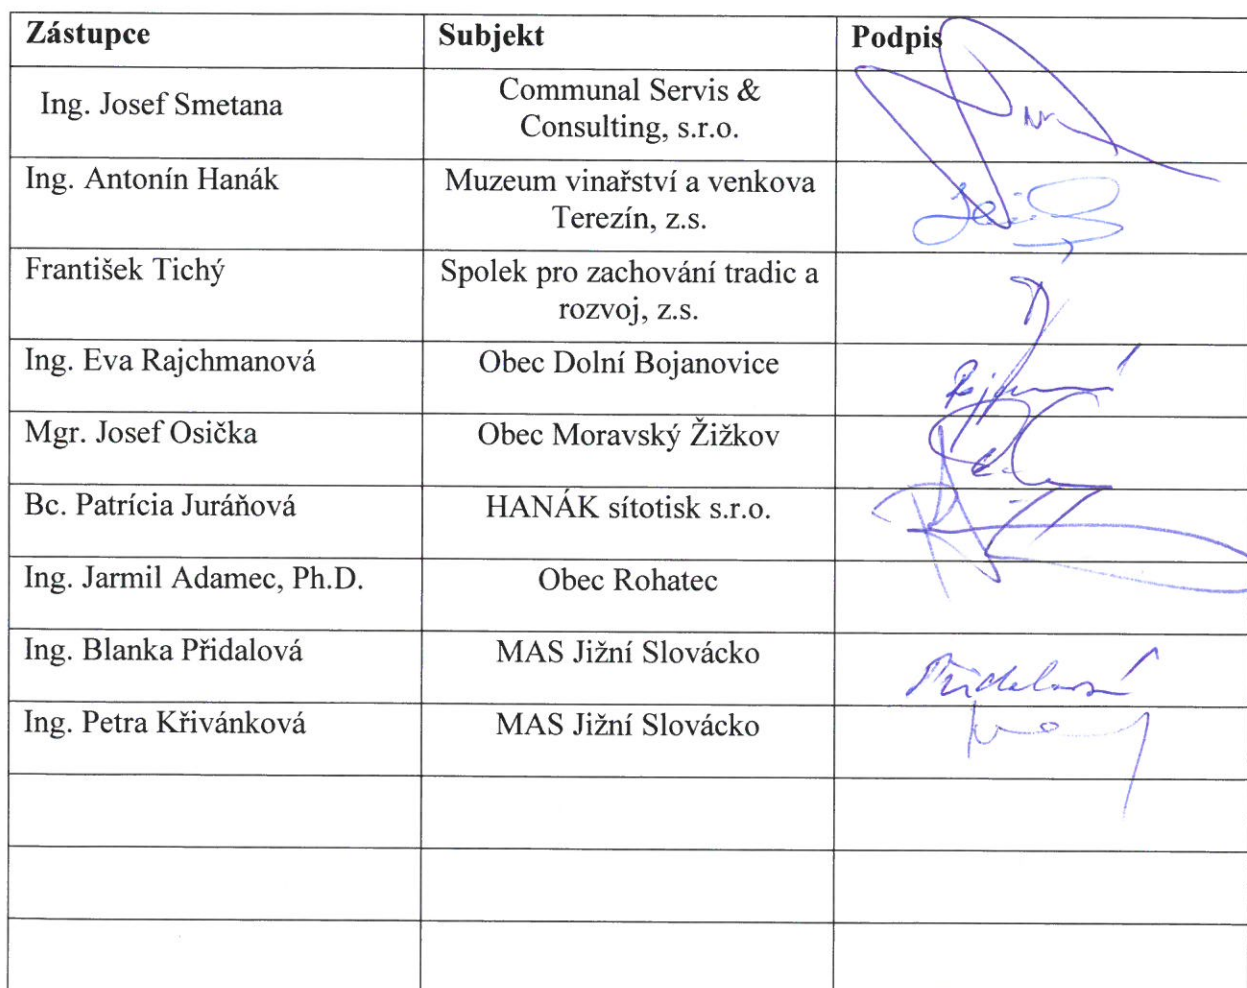 Zástupce Subjekt Podpis
Ing. Josef Smetana Communal Servis &
Consulting, s.r.o.
Ing. Antonín Hanák Muzeum vinařství a venkova
Terezín, z.s.
František Tichý Spolek pro zachování tradic a
rozvoj, z.s.
Ing. Eva Rajchmanová Obec Dolní Bojanovice
Mgr. Josef Osička Obec Moravský Žižkov
Bc. Patrícia Juráňová HANÁK sítotisk s.r.o.
Ing. Jarmil Adamec, Ph.D. Obec Rohatec
Ing. Blanka Přidalová MAS Jižní Slovácko Přidalová
Ing. Petra Křivánková MAS Jižní Slovácko